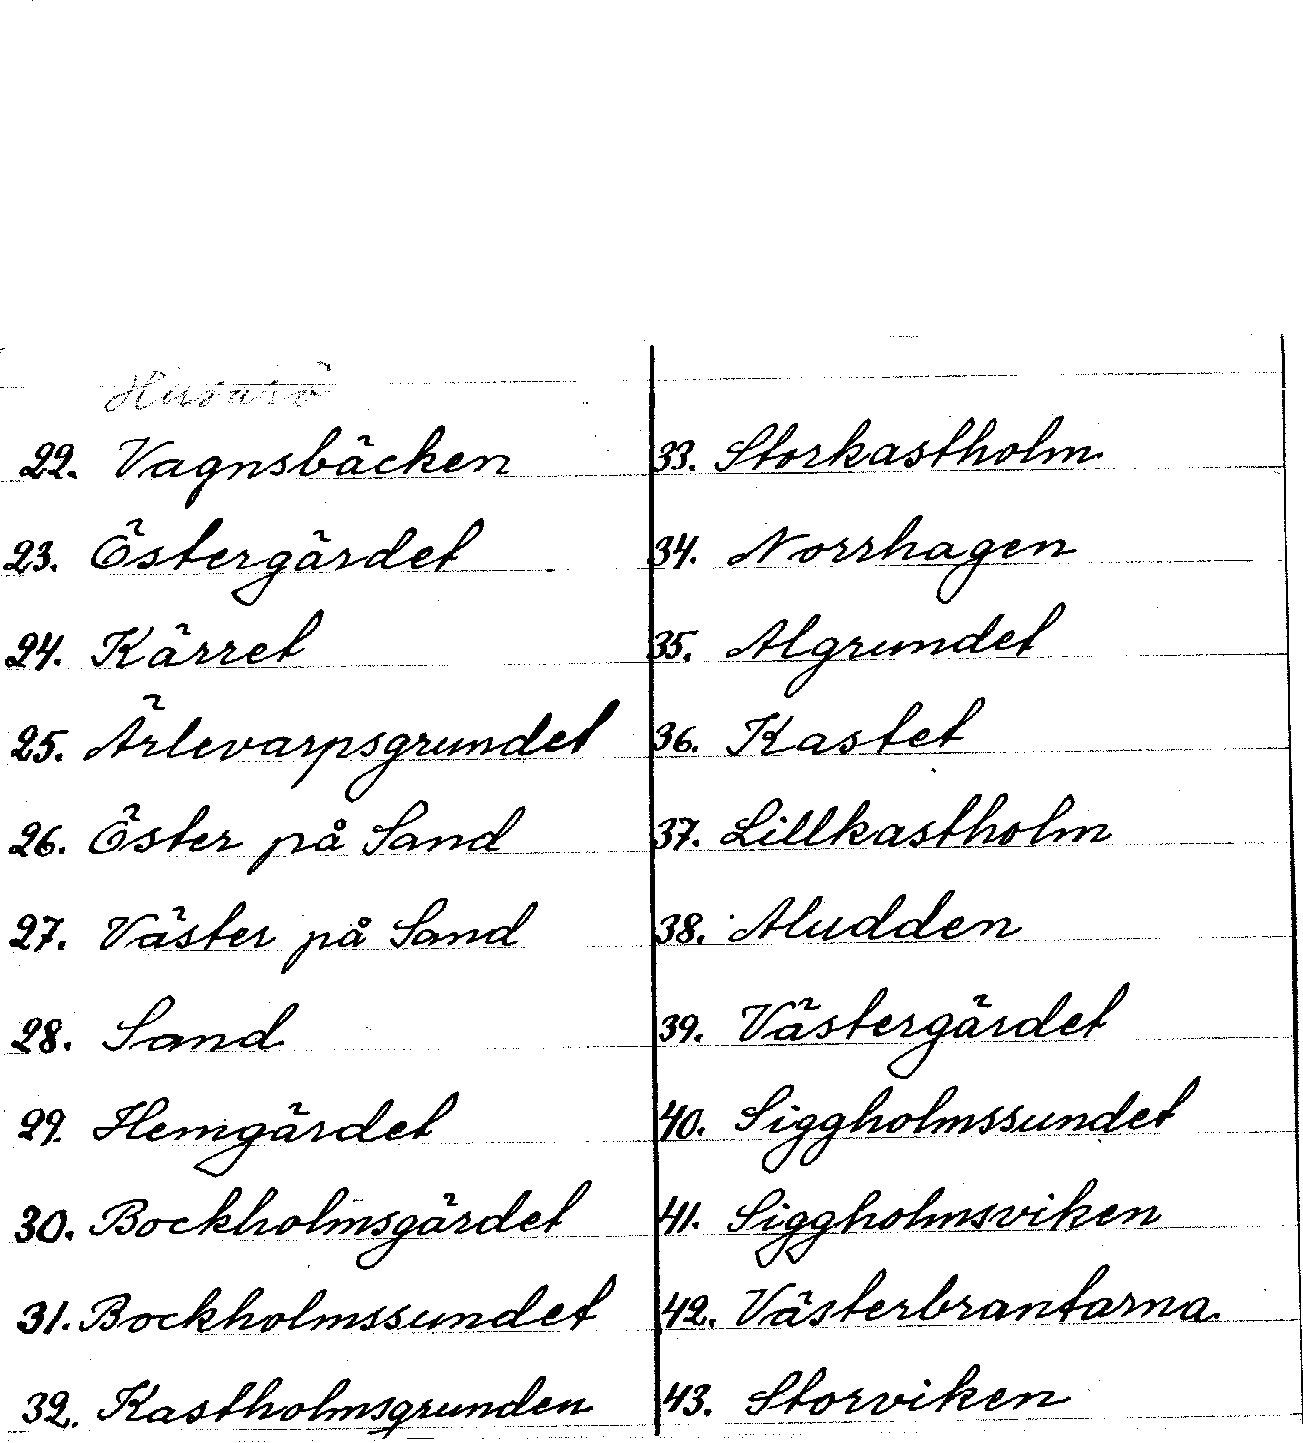 Husarö
22. Vagnsbäcken
23. Östergärdet
24. Kärret
25. Ärlevarpsgrundet
26. Öster på Sand
27. Väster på Sand
28. Sand
29. Hemgärdet
30. Bockholmsgärdet
31. Bockholmssundet
32. Kastholmsgrunden
33. Storkastholm.
34. Norrhagen
35. Algrundet
36. Kastet
37. Lillkastholm
38. Aludden
39. Västergärdet
40. Siggholmssundet
41. Siggholmsviken
42. Västerbrantarna.
43. Storviken